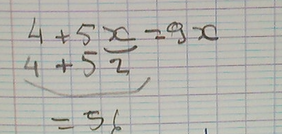 4 + 5x = 9x
4 + 52
= 56